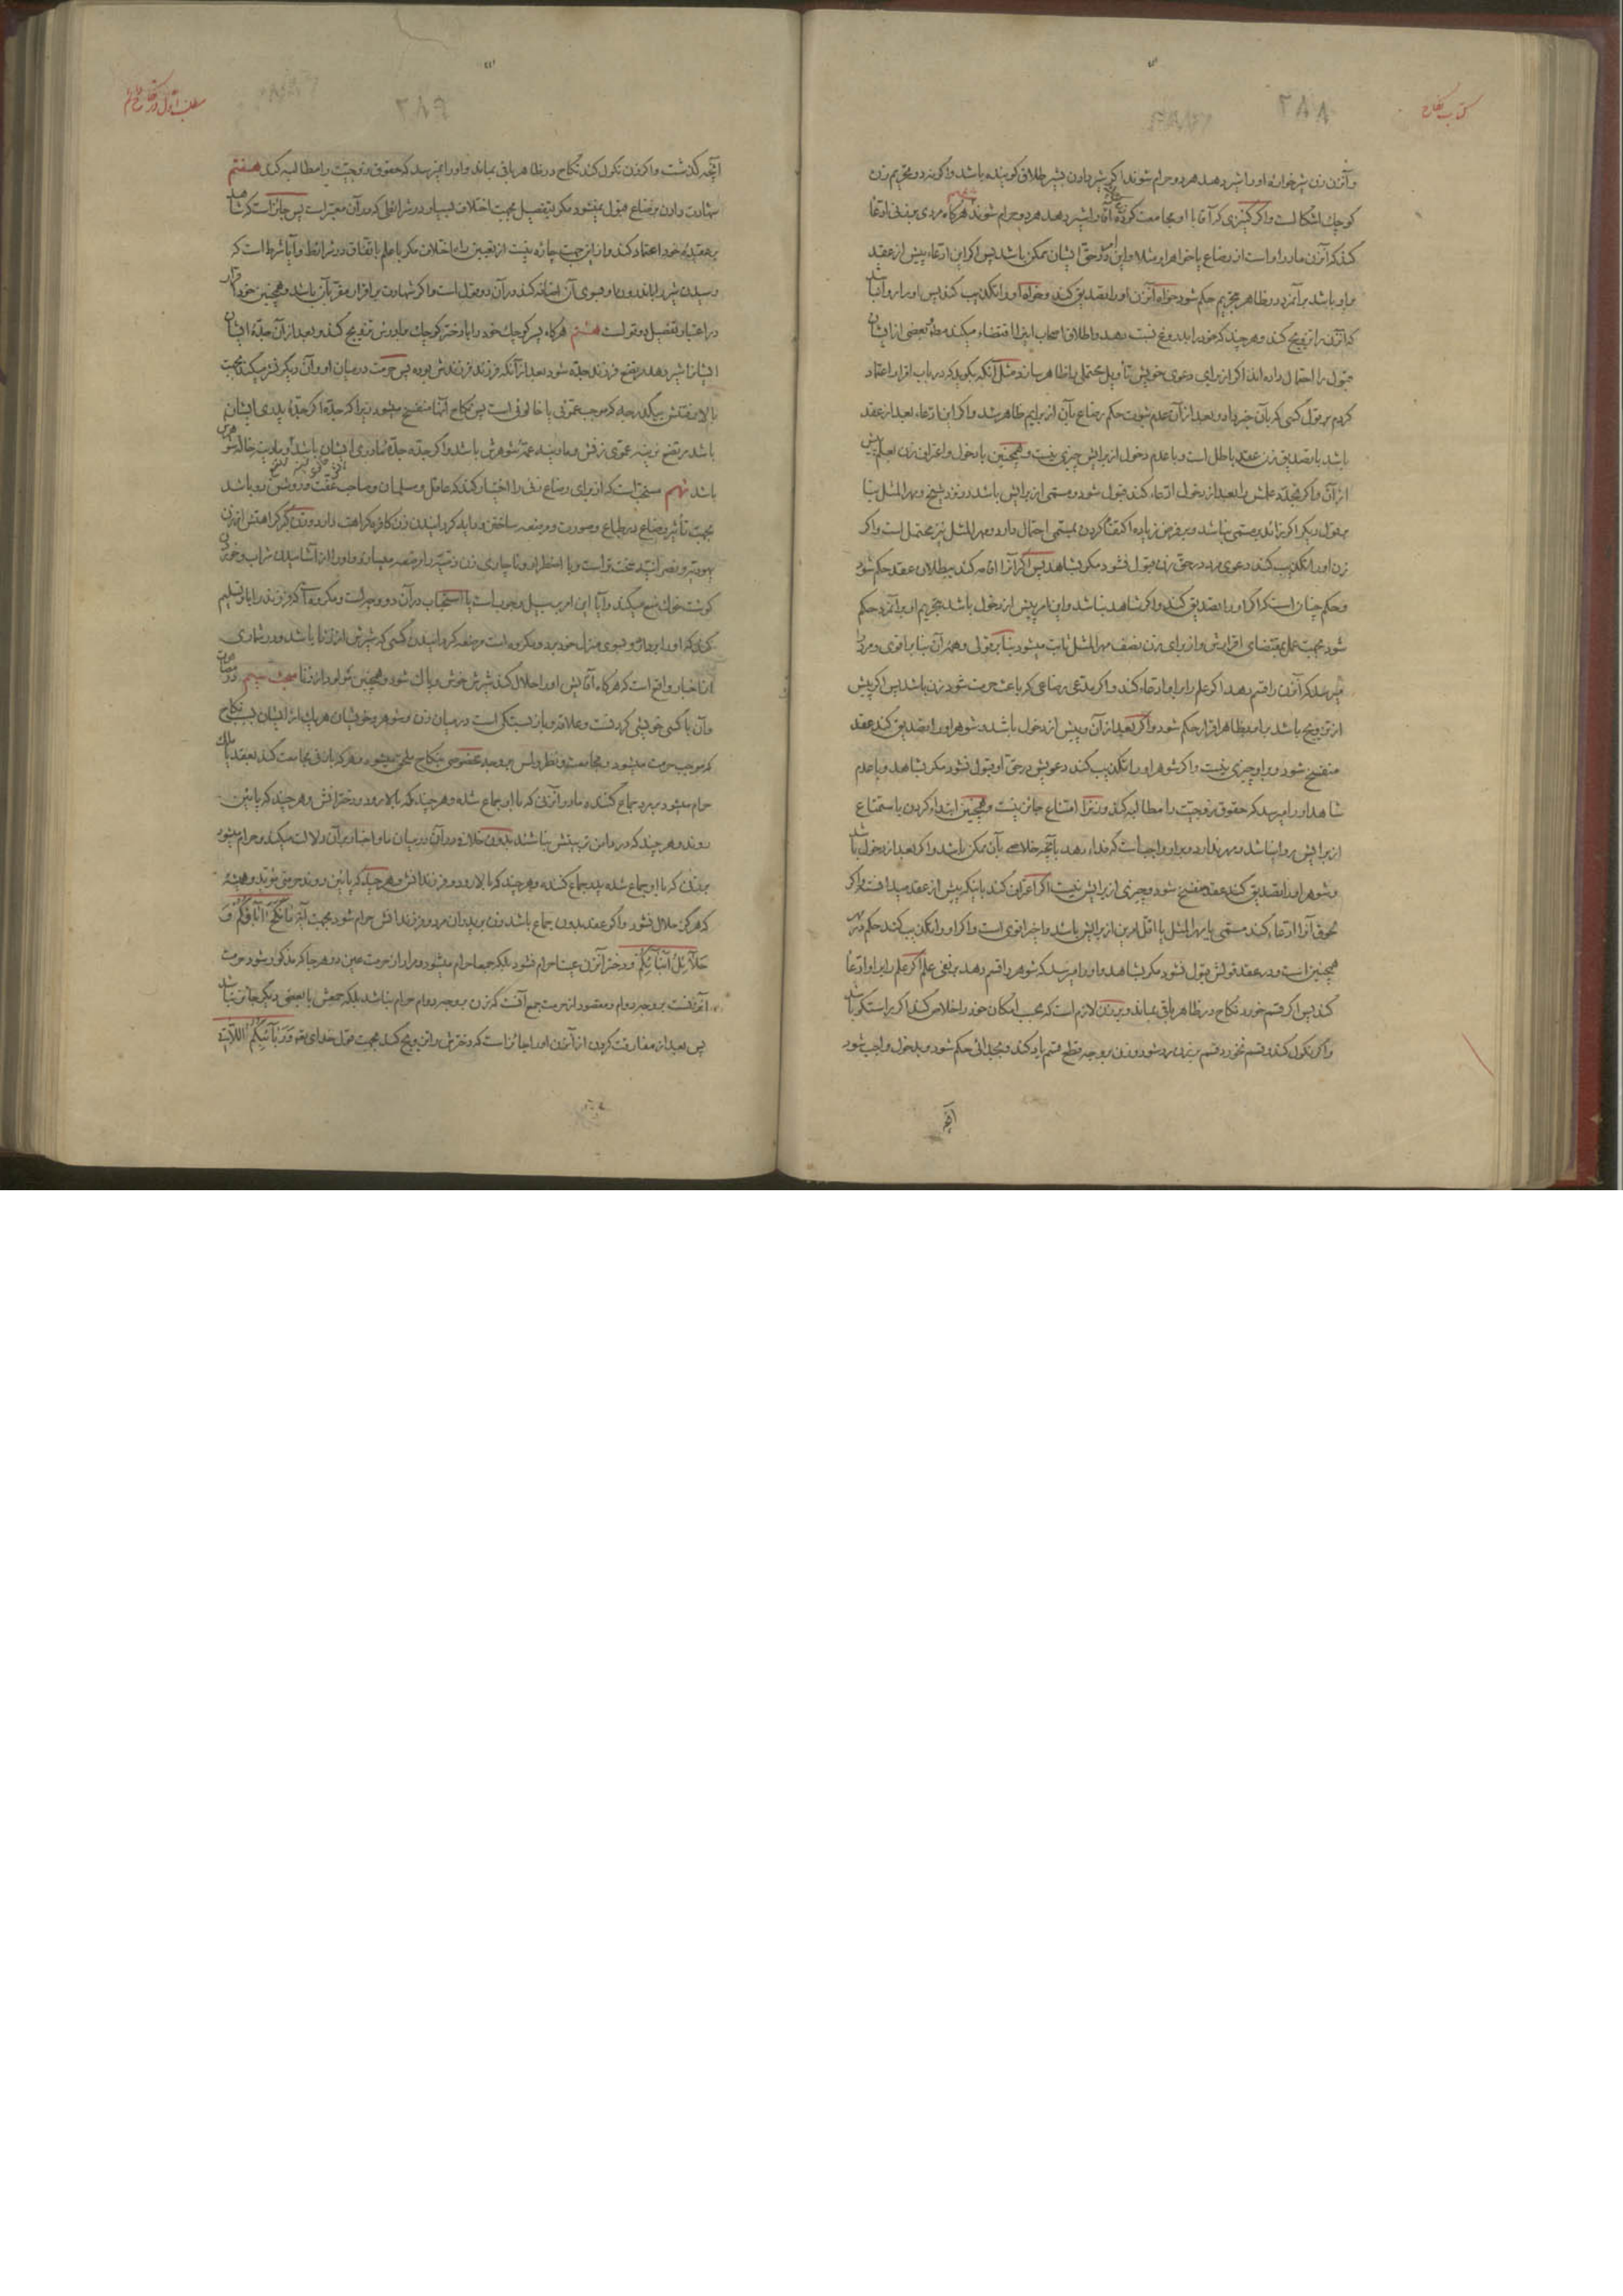 کتاب نکاح
۲۸۸
وآنزن زن شیرخواره او را شیر دهد هر دو حرام شوند اگر شیر دادن بشیر طلاق گوینده باشد واگر نه در تحریم زن
کوچك اشکالست واگر کنیزی که آقا با او مجامعت کرده زن آقا را شیر دهد هر دو حرام شوند ششم هرگاه مردی بر زنی ادعا
کند که آنزن مادر او است از رضاع یا خواهر او مثلا واین در حق ایشان ممکن باشد پس اگر این ادعاء پیش از عقد
بر او باشد بر آنمرد در ظاهر بتحریم حکم شود خواه آنزن او را تصدیق کند وخواه او را تکذیب کند پس او را روا نباشد
که آنزن را تزویج کند وهر چند که خود را بدروغ نسبت دهد واطلاق اصحاب این را اقتضاء میکند وبعضی از ایشان
قبول را احتمال داده اند اگر از برای دعوی خویش تأویل محتملی را ظاهر سازد مثل آنکه بگوید که در باب اقرار اعتماد
کردم بر قول کسی که بآن خبر داد وبعد از آن عدم ثبوت حکم رضاع بآن از برایم ظاهر شد واگر این ادعاء بعد از عقد
باشد با تصدیق زن عقد باطل است وبا عدم دخول از برایش چیزی نیست وهمچنین با دخول واعتراف زن بعلم پیش
از آن واگر تجدد علمش را بعد از دخول ادعاء کند قبول شود ومسمی از برایش باشد در نزد شیخ ومهر المثل بنا
بر قول دیگر اگر زائد بر مسمی نباشد وبر فرض زیاده اکتفا کردن بمسمی احتمال دارد ومهر المثل نیز محتمل است واگر
زن او را تکذیب کند دعوی مرد در حق زن قبول نشود مگر بشاهد پس اگر آنرا اقامه کند ببطلان عقد حکم شود
وحکم چنانست که اگر او را تصدیق کند واگر شاهد نباشد واین امر پیش از دخول باشد بتحریم او بر آنمرد حکم
شود بجهت عمل بمقتضای اقرارش واز برای زن نصف مهر المثل ثابت میشود بنا بر قولی وهمه آن بنا بر اقوی ومرد را
میرسد که آنزن را قسم دهد اگر علم را بر او ادعاء کند واگر مدعی رضاعی که باعث حرمت شود زن باشد پس اگر پیش
از تزویج باشد بر او بظاهر اقرار حکم شود واگر بعد از آن وپیش از دخول باشد وشوهر او را تصدیق کند عقد
منفسخ شود وبر او چیزی نیست واگر شوهر او را تکذیب کند دعویش در حق او قبول نشود مگر بشاهد وبا عدم
شاهد او را میرسد که حقوق زوجیت را مطالبه کند وزن را امتناع جائز نیست وهمچنین ابتداء کردن باستمتاع
از برایش روا نباشد ومهر ندارد وبر او واجب است که فداء دهد بآنچه خلاصی بآن ممکن باشد واگر بعد از دخول باشد
وشوهر او را تصدیق کند عقد منفسخ شود وچیزی از برایش نیست اگر اعتراف کند باینکه پیش از عقد میدانسته واگر
لحوق آنرا ادعاء کند مسمی یا مهر المثل یا اقل امرین از برایش باشد واخیر اقوی است واگر او را تکذیب کند حکم در مهر
همچنین است ودر عقد قولش قبول نشود مگر بشاهد واو را میرسد که شوهر را قسم دهد بر نفی علم اگر علم را بر او ادعا
کند پس اگر قسم خورد نکاح در ظاهر باقی بماند وبر زن لازم است که بحسب امکان خود را خلاص کند اگر راستگو باشد
واگر نکول کند وقسم نخورد قسم بر زن رد شود وزن بر وجه قطع قسم یاد کند وبجدائی حکم شود وبدخول واجب شود
آنچه
مطلب اول در نکاح دائم
۲۸۹
آنچه گذشت واگر زن نکول کند نکاح در ظاهر باقی بماند واو را نمیرسد که حقوق زوجیت را مطالبه کردی هفتم
شهادت دادن برضاع قبول نمیشود مگر بتفصیل بجهت اختلاف بسیار در شرائطی که در آن معتبر است پس جائز است که شاهد
بر عقیده خود اعتماد کند واز این جهت چاره نیست از تعیین رافع اختلاف مگر با علم باتفاق در شرائط وآیا شرط است که
رسیدن شیر را باندرون او بسوی آن اضافه کند در آن دو قول است واگر شهادت بر اقرار مقر بآن باشد وهمچنین خود اقرار
در اعتبار تفصیل دو قولست هشتم هرگاه پسر کوچك خود را با دختر کوچك برادرش تزویج کند وبعد از آن جده ایشان
ایشانرا شیر دهد مرتضع فرزند جده شود بعد از آنکه فرزند فرزندش بوده پس حرمت در میان او وآن دیگر نشر میکند بجهت
بالا رفتنش بیکدرجه که موجب عموتی یا خالوئی است پس نکاح آنها منفسخ میشود زیرا که جده اگر جده پدری ایشان
باشد مرتضع نرینه عموی زنش ومادینه عمه شوهرش باشد واگر جده جده مادری ایشان باشد نرینه خالوی زنش ومادینه خاله شوهرش
باشد نهم مستحب است که از برای رضاع زنی را اختیار کند که عاقل ومسلمان وصاحب عفت وروشن رو باشد
بجهت تأثیر رضاع در طباع وصورت ومرضعه ساختن ودایه گردانیدن زن کافره کراهت دارد وزن گبر کراهتش از زن
یهودیه ونصرانیه سخت تر است وبا اضطرار وناچاری زن ذمیه را مرضعه میسازد واو را از آشامیدن شراب وخوردن
گوشت خوك منع میکند وآیا این امر بر سبیل وجوب است یا استحباب در آن دو وجه است ومکروه است که فرزند را باو تسلیم
کردی که او را بردارد وبسوی منزل خود برد ومکروه است مرضعه گردانیدن کسی که شیرش از زنا باشد ودر شماری
از اخبار واقع است که هرگاه آقایش او را حلال کند شیرش خوش وپاك شود وهمچنین تولد او از زنا مبحث سیم در مصاهرت
وآن با کسی خویشی کردنست وعلاقه وباز بستگی است در میان زن وشوهر وخویشان هر یك از ایشان بسبب نکاح
که موجب حرمت میشود وبمجامعت ونظر ولمس بر وجه مخصوصی بنکاح ملحق میشود وهر که با زنی مجامعت کند بعقد یا ملك
حرام میشود بر مرد جماع کننده مادر آنزنی که با او جماع شده وهر چند که بالا رود ودخترانش وهر چند که پائین
روند وهر چند که در دامن تربیتش نباشند بدون خلاف در آن در میان ما واخبار بر آن دلالت میکند وحرام میشود
بر زنی که با او جماع شده پدر جماع کننده وهر چند که بالا رود وفرزندانش وهر چند که پائین روند حرمتی مؤبد وهمیشه
که هرگز حلال نشود واگر عقد بدون جماع باشد زن بر پدران مرد وفرزندانش حرام شود بجهت آیه مانکح آباؤکم و
حلائل ابنائکم ودختر آنزن عینا حرام نشود بلکه جمعا حرام میشود ومراد از حرمت عین در هر جا که مذکور شود حرمت
آنزنست بر وجه دوام ومقصود از حرمت جمع آنست که زن بر وجه دوام حرام نباشد بلکه جمعش با بعضی دیگر جائز نباشد
پس بعد از مفارقت کردن از آنزن او را جائز است که دخترش را تزویج کند بجهت قول خدای تعه وربائبکم اللاتی